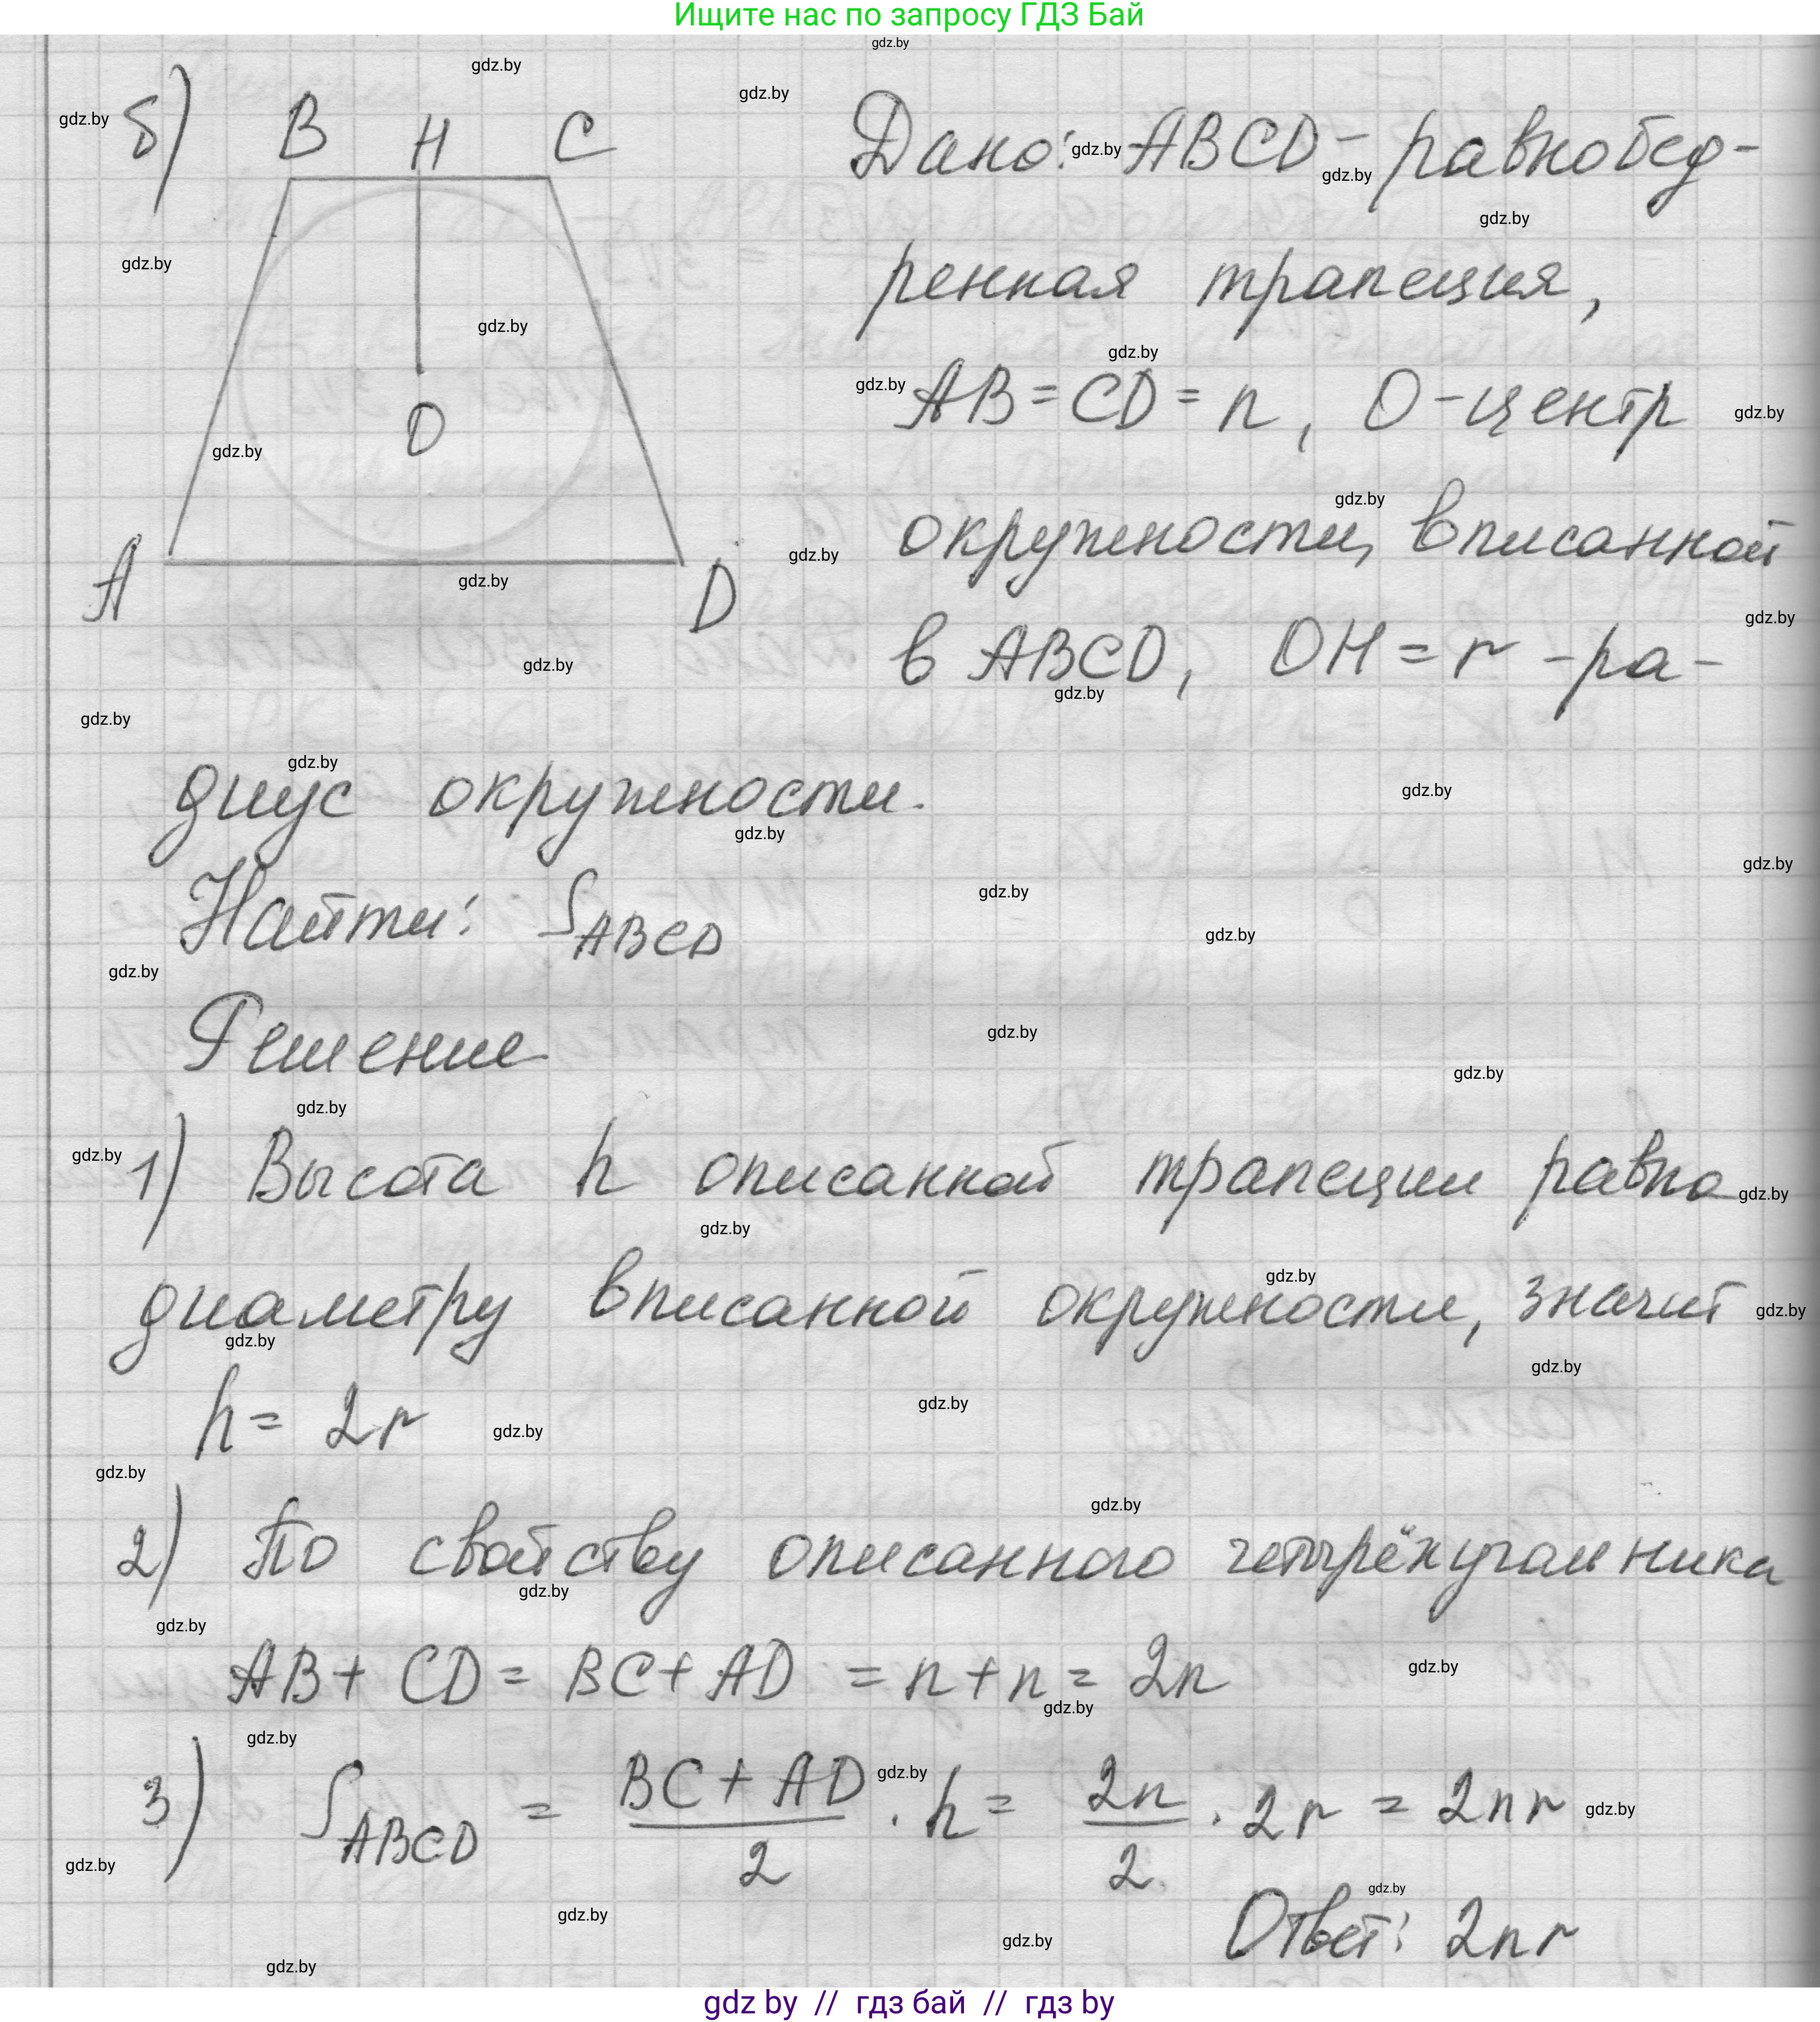 Ищите нас по запросу ГДЗ Бай
б) B H C
O
A D
Дано: ABCD - равнобед-
ренная трапеция,
AB = CD = n, O - центр
окружности, вписанной
в ABCD, OH = r - ра-
диус окружности.
Найти: S_ABCD
Решение
1) Высота h описанной трапеции равна
диаметру вписанной окружности, значит
h = 2r
2) По свойству описанного четырёхугольника
AB + CD = BC + AD = n + n = 2n
3) S_ABCD = (BC + AD)/2 · h = 2n/2 · 2r = 2nr
Ответ: 2nr
gdz by // гдз бай // гдз by
gdz.by